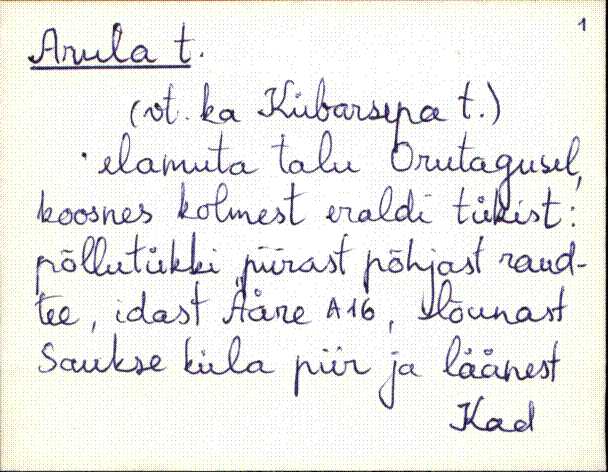 1
Arula t.
(vt. ka Kübarsepa t.)
elamuta talu Orutagusel,
koosnes kolmest eraldi tükist:
põllutükki piirast põhjast raud-
tee, idast Ääre A16, lõunast
Saukse küla piir ja läänest
Kad